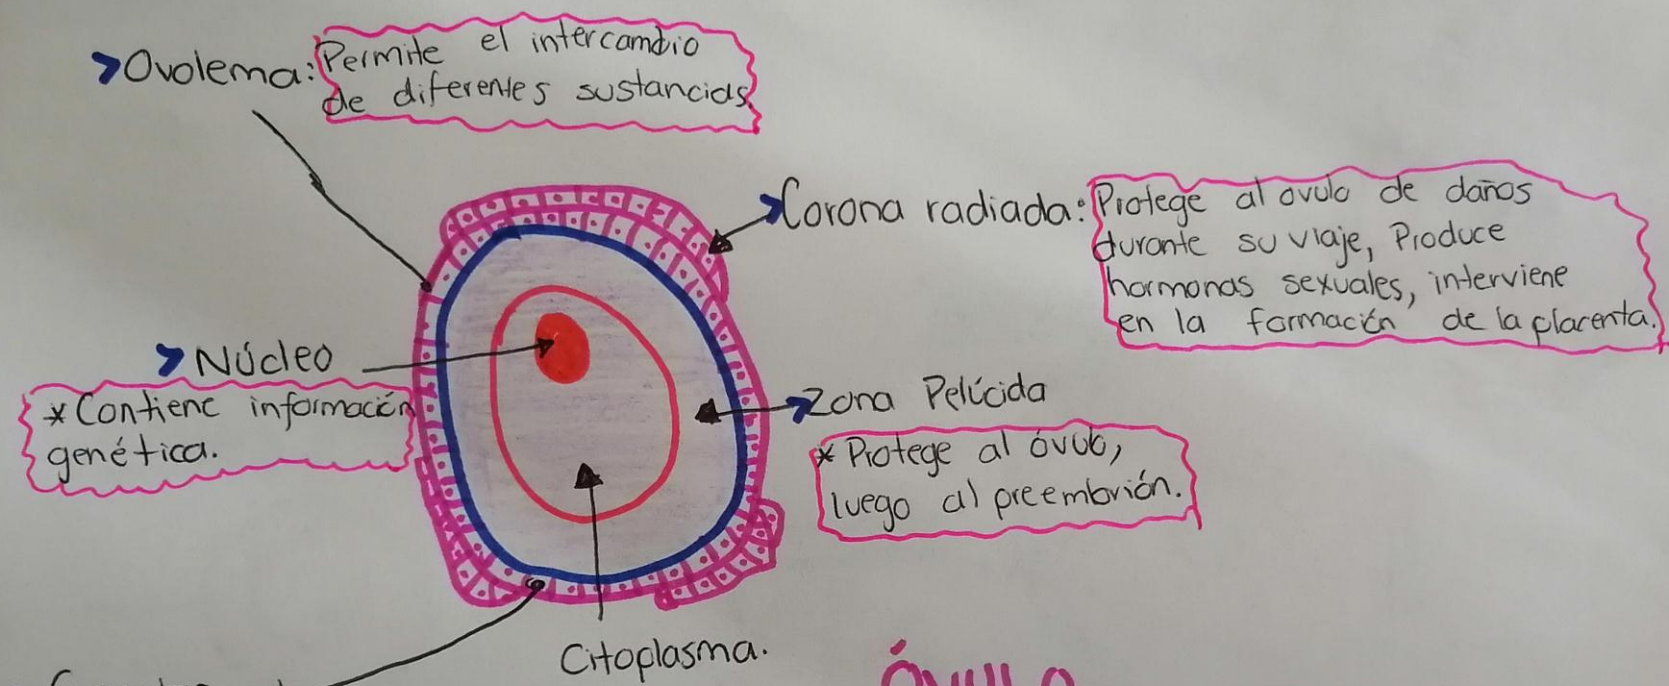 Ovolema: Permite el intercambio
de diferentes sustancias.
Corona radiada: Protege al ovulo de daños
durante su viaje, Produce
hormonas sexuales, interviene
en la formación de la placenta.
Núcleo
* Contiene información
genética.
Zona Pelúcida
* Protege al óvulo,
luego al preembrión.
Citoplasma.
ÓVULO